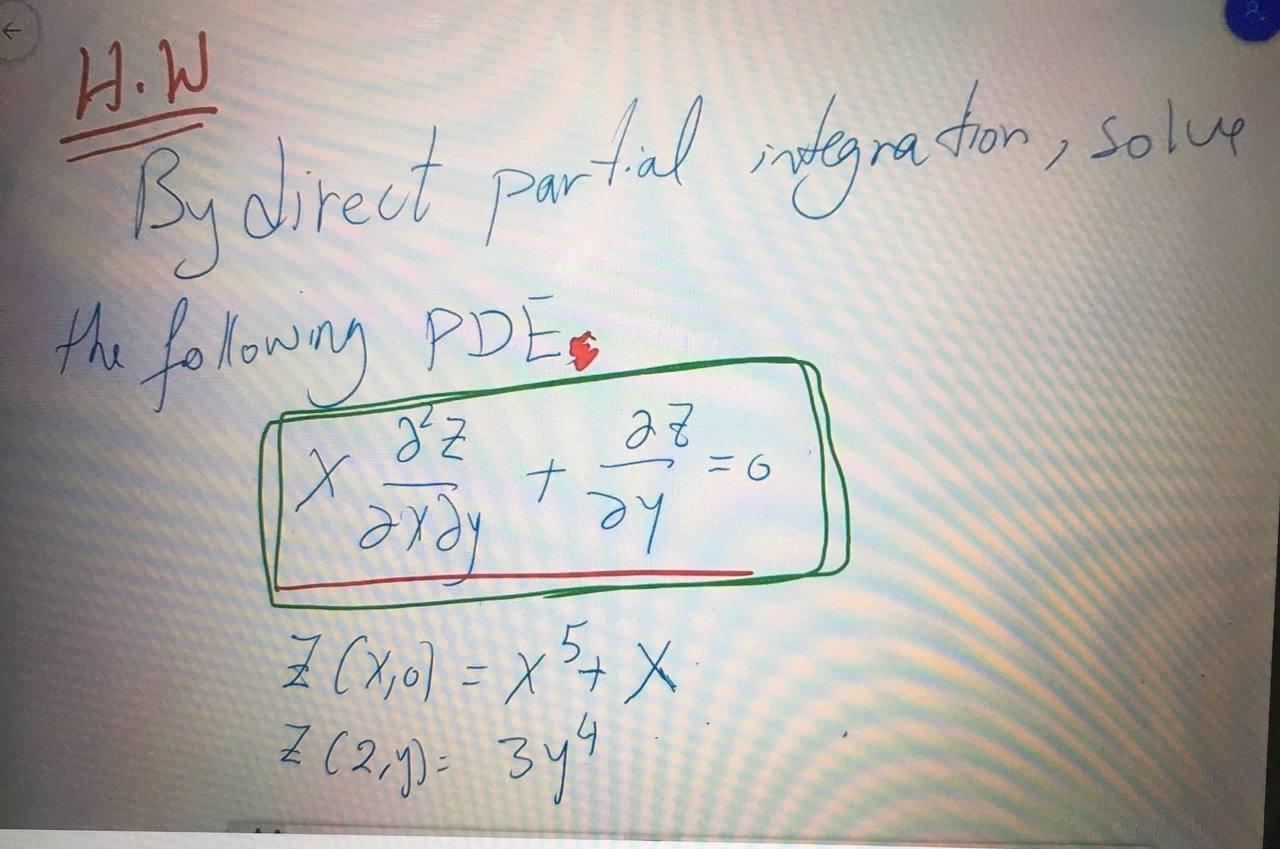 H.W
By direct partial integration, solve
the following PDE
x ∂²z/∂x∂y + ∂z/∂y = 0
z(x,0) = x⁵ + x
z(2,y) = 3y⁴